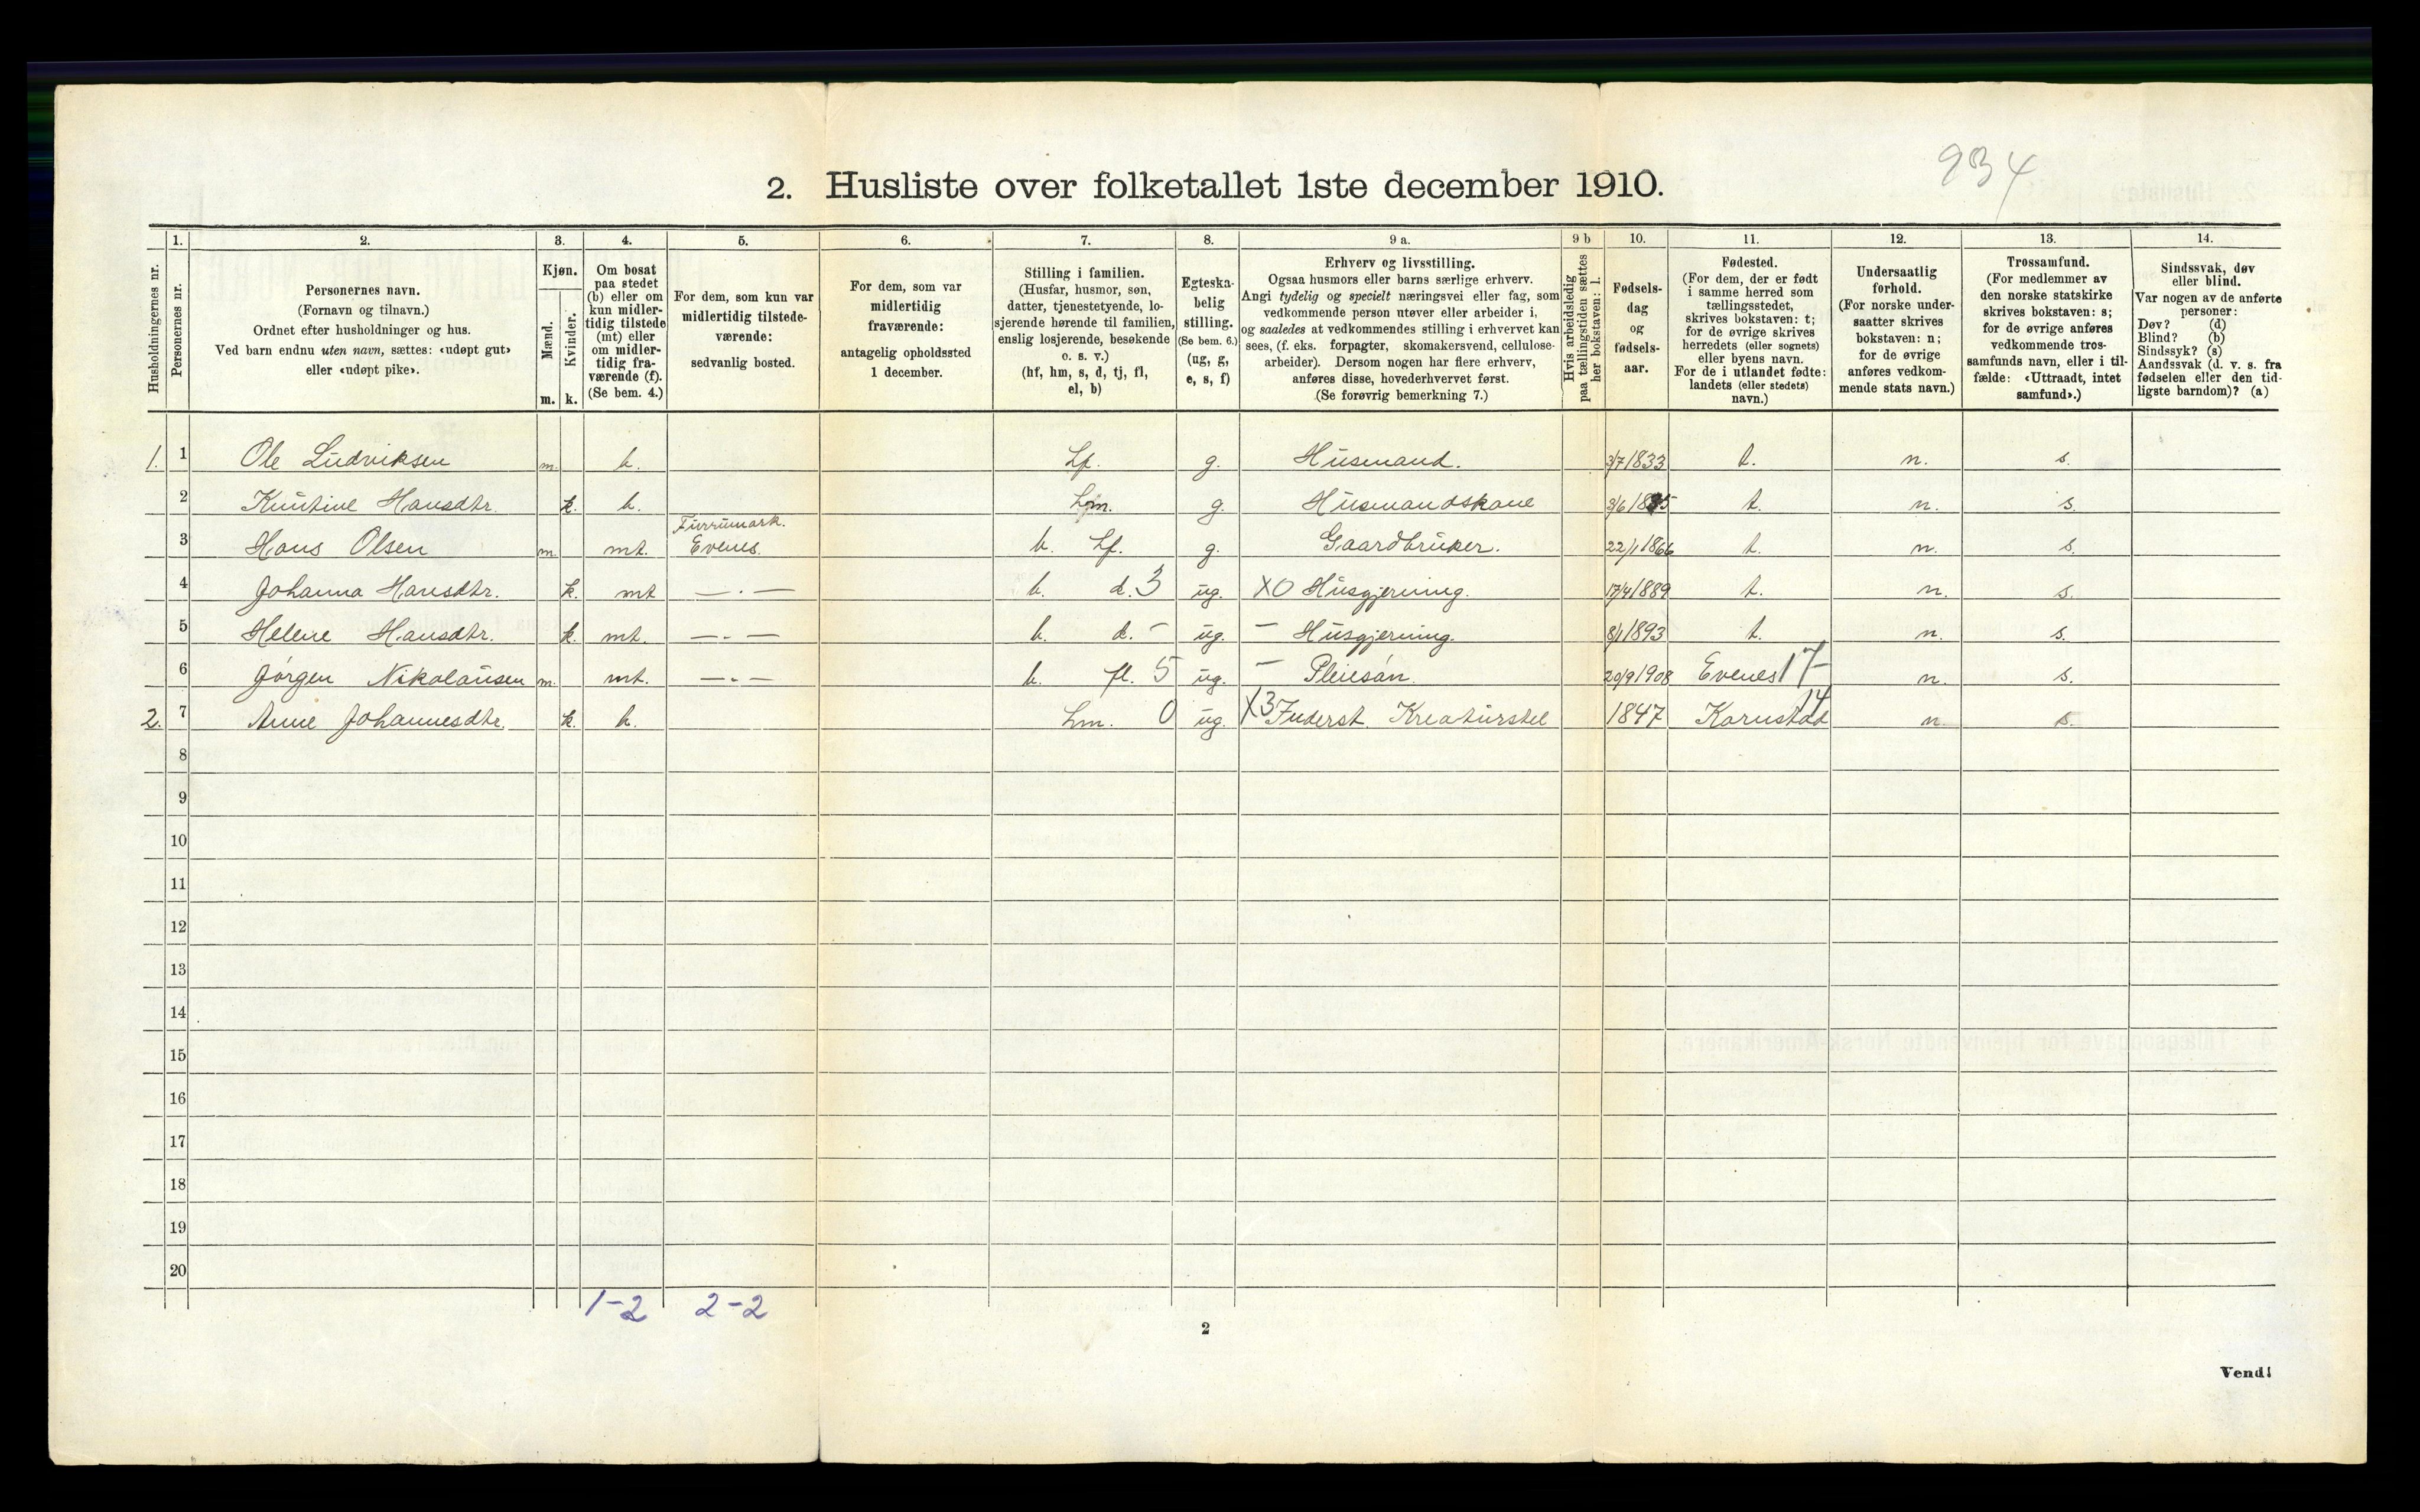 934
2. Husliste over folketallet 1ste december 1910.
Husholdningernes nr.
1.
Personernes nr.
2.
Personernes navn.
(Fornavn og tilnavn.)
Ordnet efter husholdninger og hus.
Ved barn endnu uten navn, sættes: «udøpt gut»
eller «udøpt pike».
3.
Kjøn.
Mænd.
Kvinder.
m. k.
4.
Om bosat
paa stedet
(b) eller om
kun midler-
tidig tilstede
(mt) eller
om midler-
tidig fra-
værende (f).
(Se bem. 4.)
5.
For dem, som kun var
midlertidig tilstede-
værende:
sedvanlig bosted.
6.
For dem, som var
midlertidig
fraværende:
antagelig opholdssted
1 december.
7.
Stilling i familien.
(Husfar, husmor, søn,
datter, tjenestetyende, lo-
sjerende hørende til familien,
enslig losjerende, besøkende
o. s. v.)
(hf, hm, s, d, tj, fl,
el, b)
8.
Egteska-
belig
stilling.
(Se bem. 6.)
(ug, g,
e, s, f)
9 a.
Erhverv og livsstilling.
Ogsaa husmors eller barns særlige erhverv.
Angi tydelig og specielt næringsvei eller fag, som
vedkommende person utøver eller arbeider i,
og saaledes at vedkommendes stilling i erhvervet kan
sees, (f. eks. forpagter, skomakersvend, cellulose-
arbeider). Dersom nogen har flere erhverv,
anføres disse, hovederhvervet først.
(Se forøvrig bemerkning 7.)
9 b
Hvis arbeidsledig
paa tællingstiden sættes
her bokstaven: l.
10.
Fødsels-
dag
og
fødsels-
aar.
11.
Fødested.
(For dem, der er født
i samme herred som
tællingsstedet,
skrives bokstaven: t;
for de øvrige skrives
herredets (eller sognets)
eller byens navn.
For de i utlandet fødte:
landets (eller stedets)
navn.)
12.
Undersaatlig
forhold.
(For norske under-
saatter skrives
bokstaven: n;
for de øvrige
anføres vedkom-
mende stats navn.)
13.
Trossamfund.
(For medlemmer av
den norske statskirke
skrives bokstaven: s;
for de øvrige anføres
vedkommende tros-
samfunds navn, eller i til-
fælde: «Uttraadt, intet
samfund».)
14.
Sindssvak, døv
eller blind.
Var nogen av de anførte
personer:
Døv? (d)
Blind? (b)
Sindssyk? (s)
Aandssvak (d. v. s. fra
fødselen eller den tid-
ligste barndom)? (a)
1. 1 Ole Ludviksen m. b. hf. g. Husmand. 3/7 1833 t. n. s.
2 Hansdtr. k. b. hm. g. Husmandskone 3/6 t. n. s.
3 Hans Olsen m. mt. Evenes. b. hf. g. Gaardbruker. 22/1 1866 t. n. s.
4 Johanna Hansdtr. k. mt — . — b. d. 3 ug. XO Husgjerning. 17/4 1889 t. n. s.
5 Helene Hansdtr. k. mt. — . — b. d. - ug. — Husgjerning. 8/1 1893 t. n. s.
6 Jørgen Nikolausen m. mt. — . — b. fl. 5 ug. — Pleiesøn. 20/9 1908 Evenes 17 n. s.
2. 7 Anne Johannesdtr. k. b. hm. 0 ug. X3 Inderst. Kreaturstel 1847 14 n. s.
8
9
10
11
12
13
14
15
16
17
18
19
20
1-2 2-2
2
Vend!